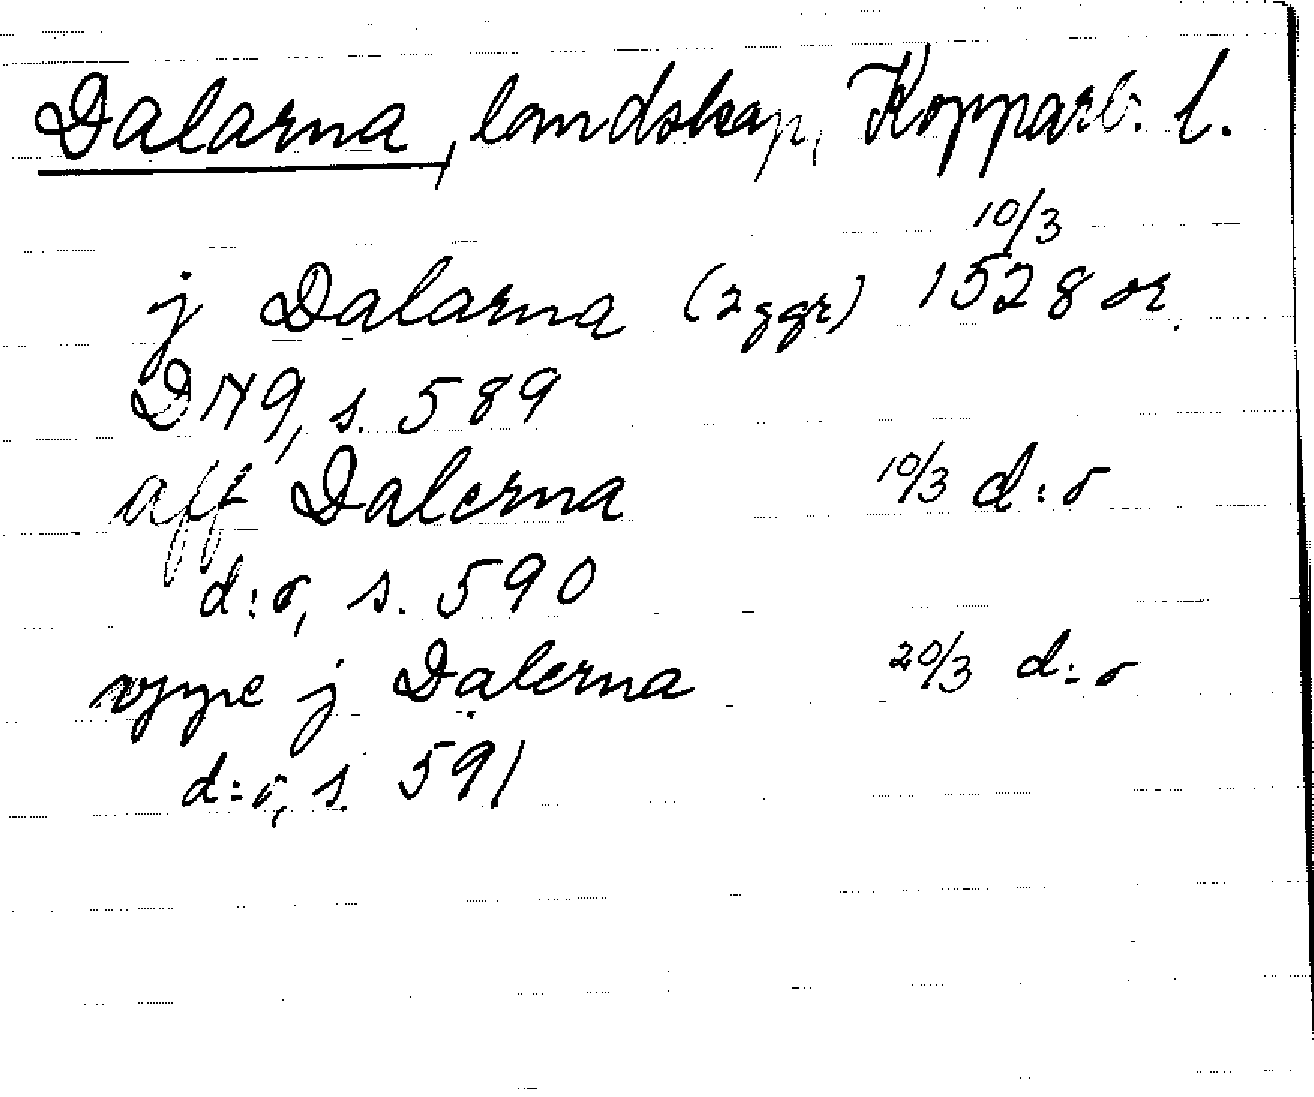 Dalarna, landskap, Kopparb. l.
j Dalarna (2 ggr) 10/3 1528 or.
DN9, s. 589
aff Dalerna 10/3 d:o
d:o, s. 590
vppe j Dalerna 20/3 d:o
d:o, s. 591